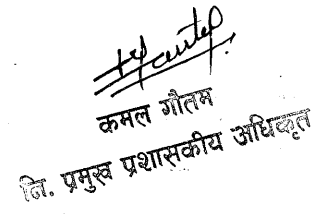 कमल गौतम
नि. प्रमुख प्रशासकीय अधिकृत